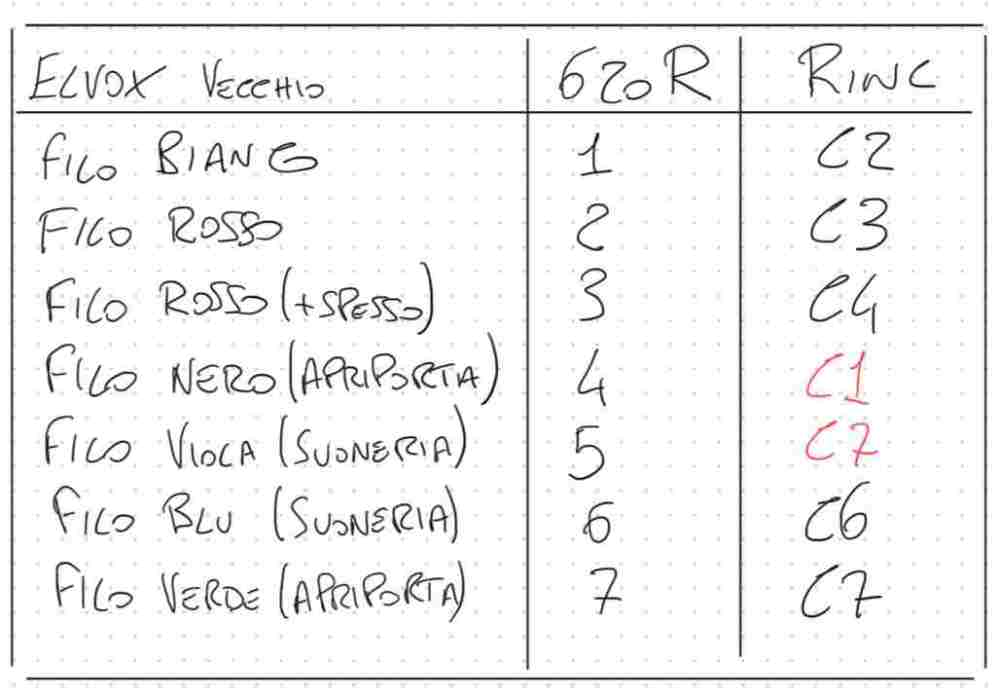 ELVOX VECCHIO 620R RING
FILO BIANCO 1 C2
FILO ROSSO 2 C3
FILO ROSSO (+SPESSO) 3 C4
FILO NERO (APRIPORTA) 4 C1
FILO VIOLA (SUONERIA) 5 C7
FILO BLU (SUONERIA) 6 C6
FILO VERDE (APRIPORTA) 7 C7